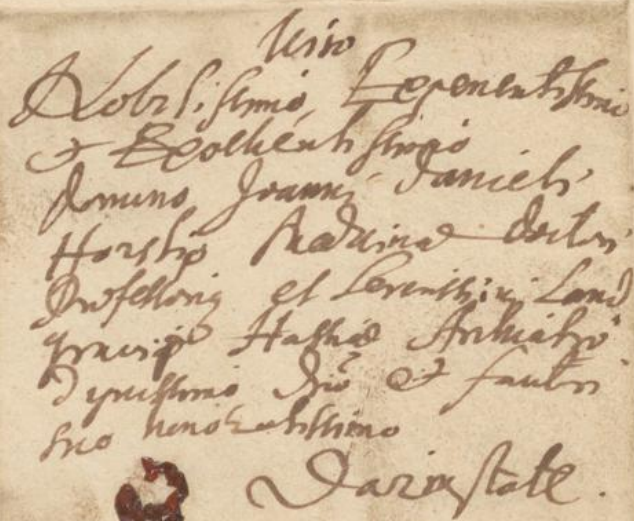 Viro
Nobilissimo, Experientissimo
& Excellentissimo
Domino, Joanni Danieli
Horstio Medicinae Doctori
Professori et Serenissimi Land
gravii Hassiae Archiatro
Dignissimo Dno & fautori
suo honoratissimo
Darmstatt.